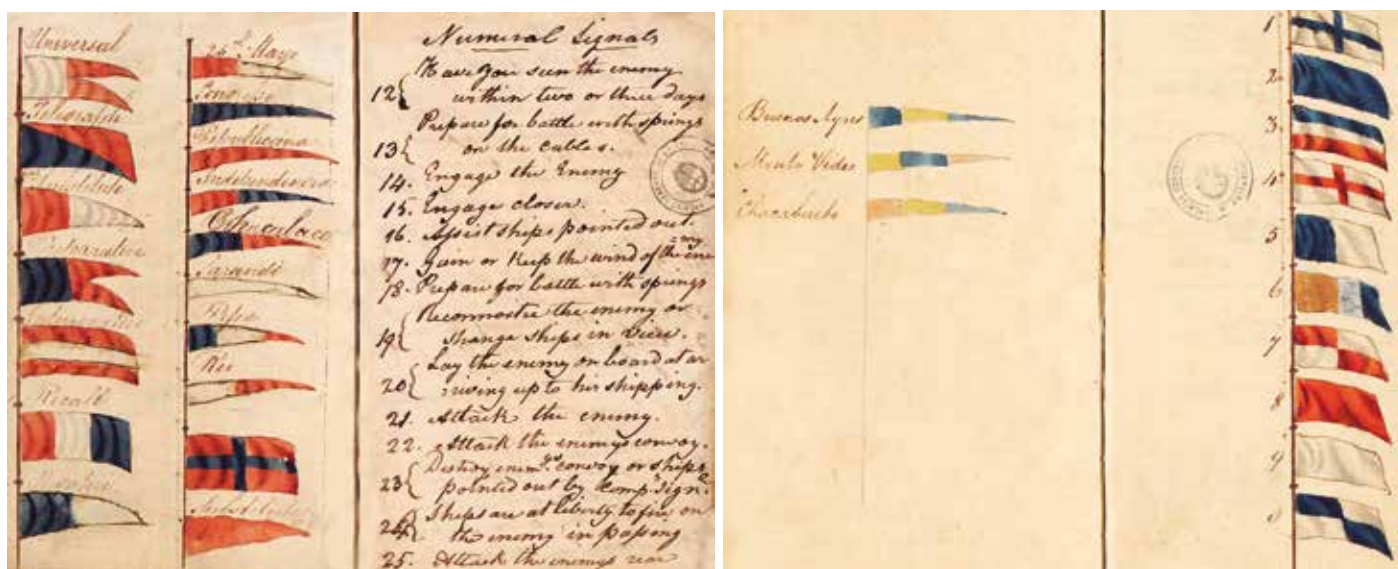 Universal
Telegraph
Substitute
Interrogative
Recall
25th Mayo
Congreso
Republicana
Independencia
Chacabuco
Sarandi
Pepa
Rio
Substitute
Numeral Signals
12 { Have you seen the enemy
within two or three days
13 { Prepare for battle with springs
on the cables.
14. Engage the Enemy
15. Engage closer.
16. Assist ships pointed out.
17. Gain or Keep the wind of the enemy
18. Prepare for battle with springs
19 { Reconnoitre the enemy or
strange ships in view.
20 { Lay the enemy on board at ar
riving up to his shipping.
21. Attack the enemy.
22. Attack the enemys convoy.
23 { Destroy enemys convoy or ships
pointed out by Comps Signl.
24 { Ships are at liberty to fire on
the enemy in passing
25. Attack the enemys rear
Buenos Ayres
Monte Video
Chacabucho
1
2
3
4
5
6
7
8
9
0